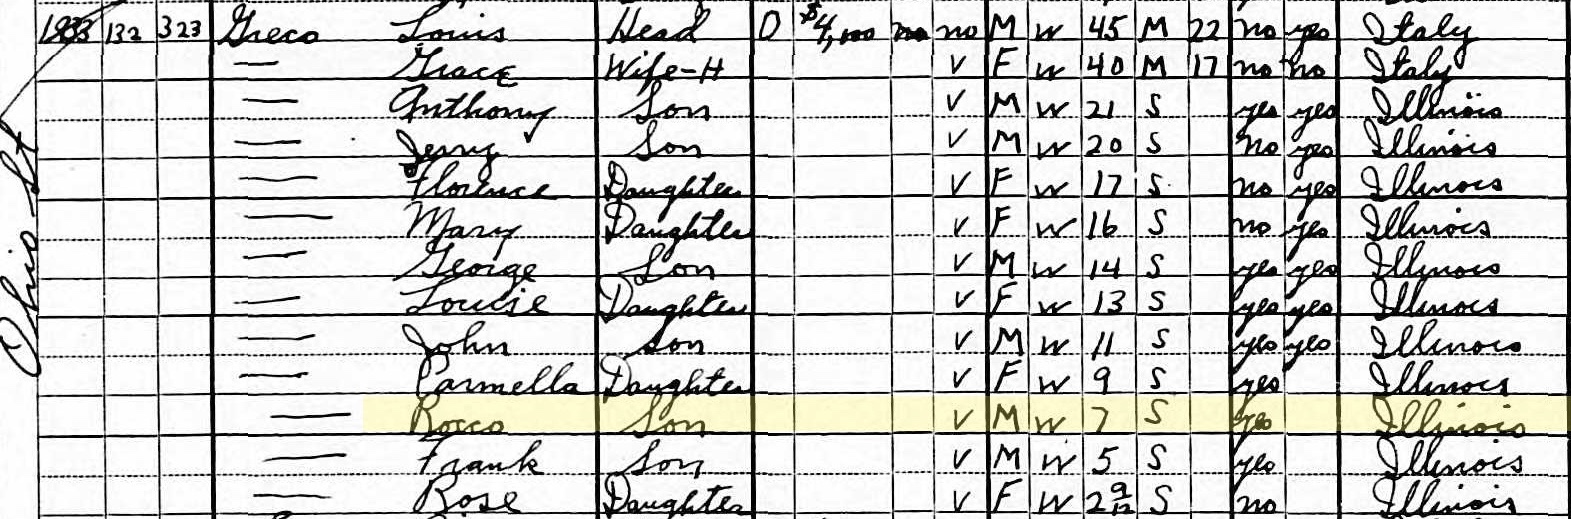 1933 132 323 Greco Louis Head O $4,000 no no M W 45 M 22 no yes Italy
— Grace Wife-H V F W 40 M 17 no no Italy
— Anthony Son V M W 21 S yes yes Illinois
— Jerry Son V M W 20 S no yes Illinois
— Florence Daughter V F W 17 S no yes Illinois
— Mary Daughter V F W 16 S no yes Illinois
— George Son V M W 14 S yes yes Illinois
— Louise Daughter V F W 13 S yes yes Illinois
— John Son V M W 11 S yes yes Illinois
— Carmella Daughter V F W 9 S yes Illinois
— Rocco Son V M W 7 S yes Illinois
— Frank Son V M W 5 S yes Illinois
— Rose Daughter V F W 2 9/12 S no Illinois
Ohio St